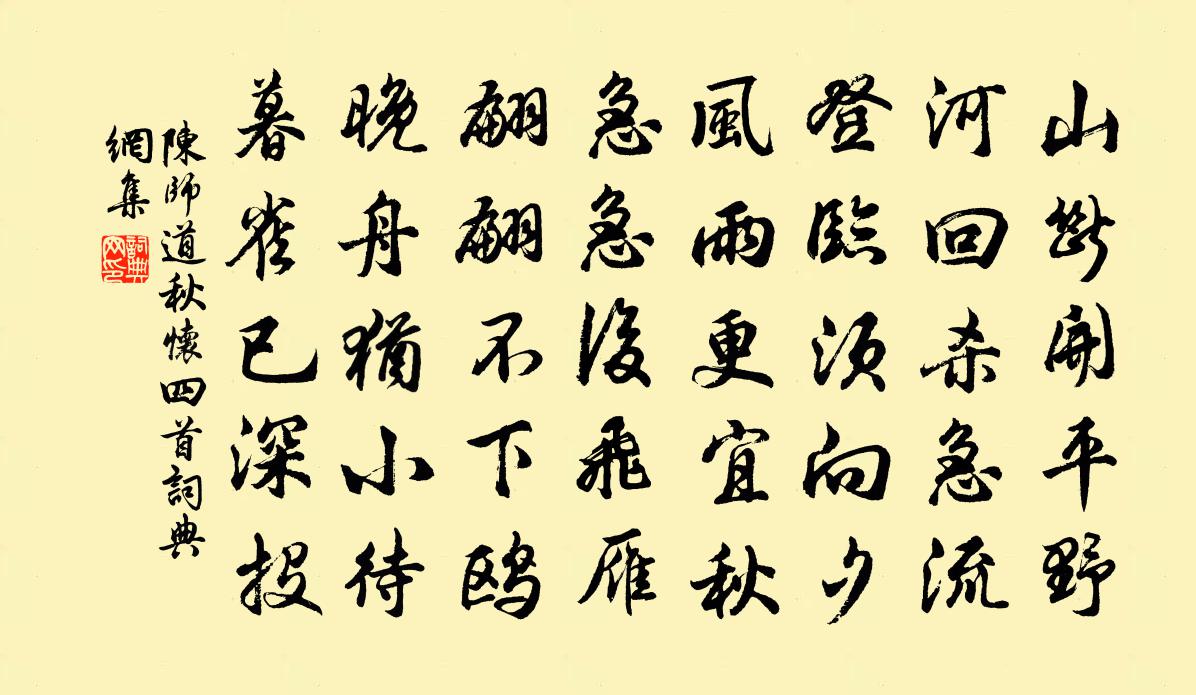 山斷開平野
河回杀急流
登臨須向夕
風雨更宜秋
急急後飛雁
翩翩不下鸥
晚舟猶小待
暮雀已深投
陳師道秋懷四首詞典
網集
詞典
网印